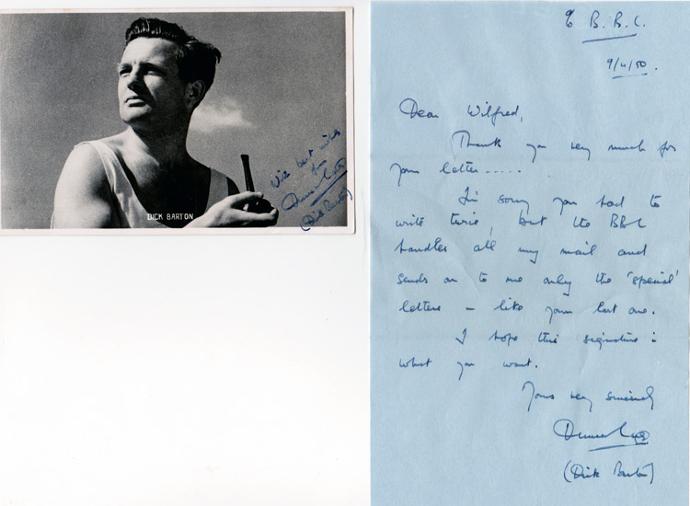 DICK BARTON
With best wishes
from
(Dick Barton)
℅ B.B.C.
9/4/50.
Dear Wilfred,
Thank you very much for
your letter.....
I'm sorry you had to
write twice, but the BBC
handles all my mail and
sends on to me only the 'special'
letters – like your last one.
I hope this signature is
what you want.
Yours very sincerely
(Dick Barton)